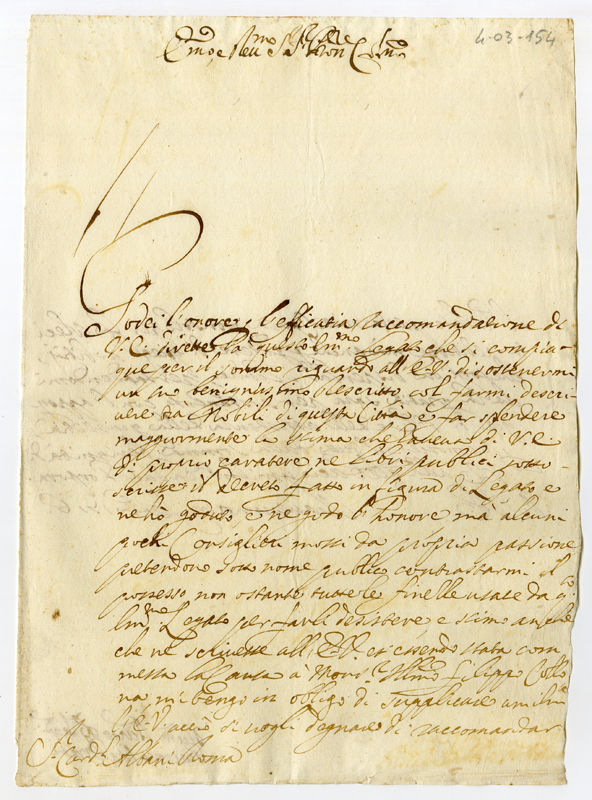 4-03-154
Em̃o e Reu.mo S.r P.rone Col.mo
Godei l'onore, e l'efficatia raccomandatione di
V. E. diretta à questo Em.mo Legato che si compia-
que per il sommo riguardo all'E. V. di sostenermi
un suo benignissimo Rescritto col farmi descri-
uere tra Nobili di questa Citta e far spendere
maggiormente la stima che haueua di V. E.
di proprio caratere ne libri publici sotto-
scrisse il Decreto fatto in figura di Legato e
ne hò goduto e ne godo l'honore mà alcuni
pochi Consiglieri mossi da propria passione
pretendono sotto nome publico contrastarmi il
possesso non ostante tutte le finelle usate da q.to
Em.mo Legato per farli desistere e stimo anche
che ne scriuesse all'E. V. et essendo stata com
messa la Causa à Mons.r Illmo Filippo Collo
na mi tengo in obligo di supplicare
l'E. V. acciò si uogli degnare di raccomandar
S.r Card.l Albani Roma